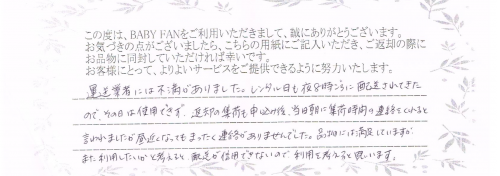 この度は、BABY FANをご利用いただきまして、誠にありがとうございます。
お気づきの点がございましたら、こちらの用紙にご記入いただき、ご返却の際に
お品物に同封していただければ幸いです。
お客様にとって、よりよいサービスをご提供できるように努力いたします。
運送業者には不満がありました。レンタル日も夜8時ごろに配送されてきた
ので、その日は使用できず、返却の集荷も申込み後、当日朝に集荷時間の連絡をくれると
言われましたが昼近くなってもまったく連絡がありませんでした。品物には満足していますが
また利用したいかと考えると配送が信用できないので利用を考えると思います。